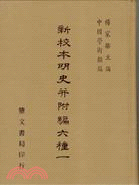 楊家駱主編
中國學術類編
新校本明史并附編六種一
鼎文書局印行